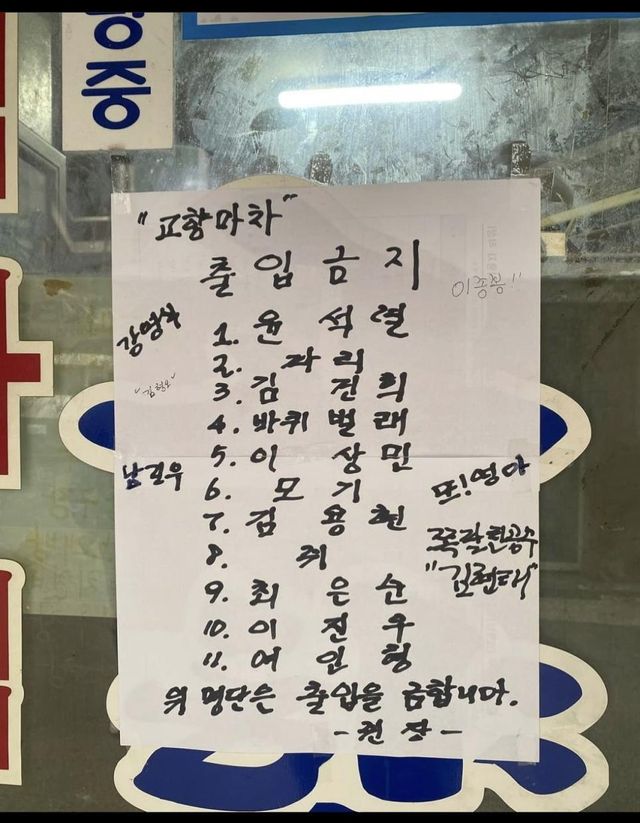 중
"교항마차"
출입금지
이종봉!!
강영식
1. 윤석열
2. 파리
3. 김건희
4. 바퀴벌래
5. 이상민
남긴우
6. 모기
또!영아
7. 김용현
쪽팔현공수
8. 쥐
"김현태"
9. 최은순
10. 이진우
11. 여인형
위 명단은 출입을 금합니다.
- 권장 -